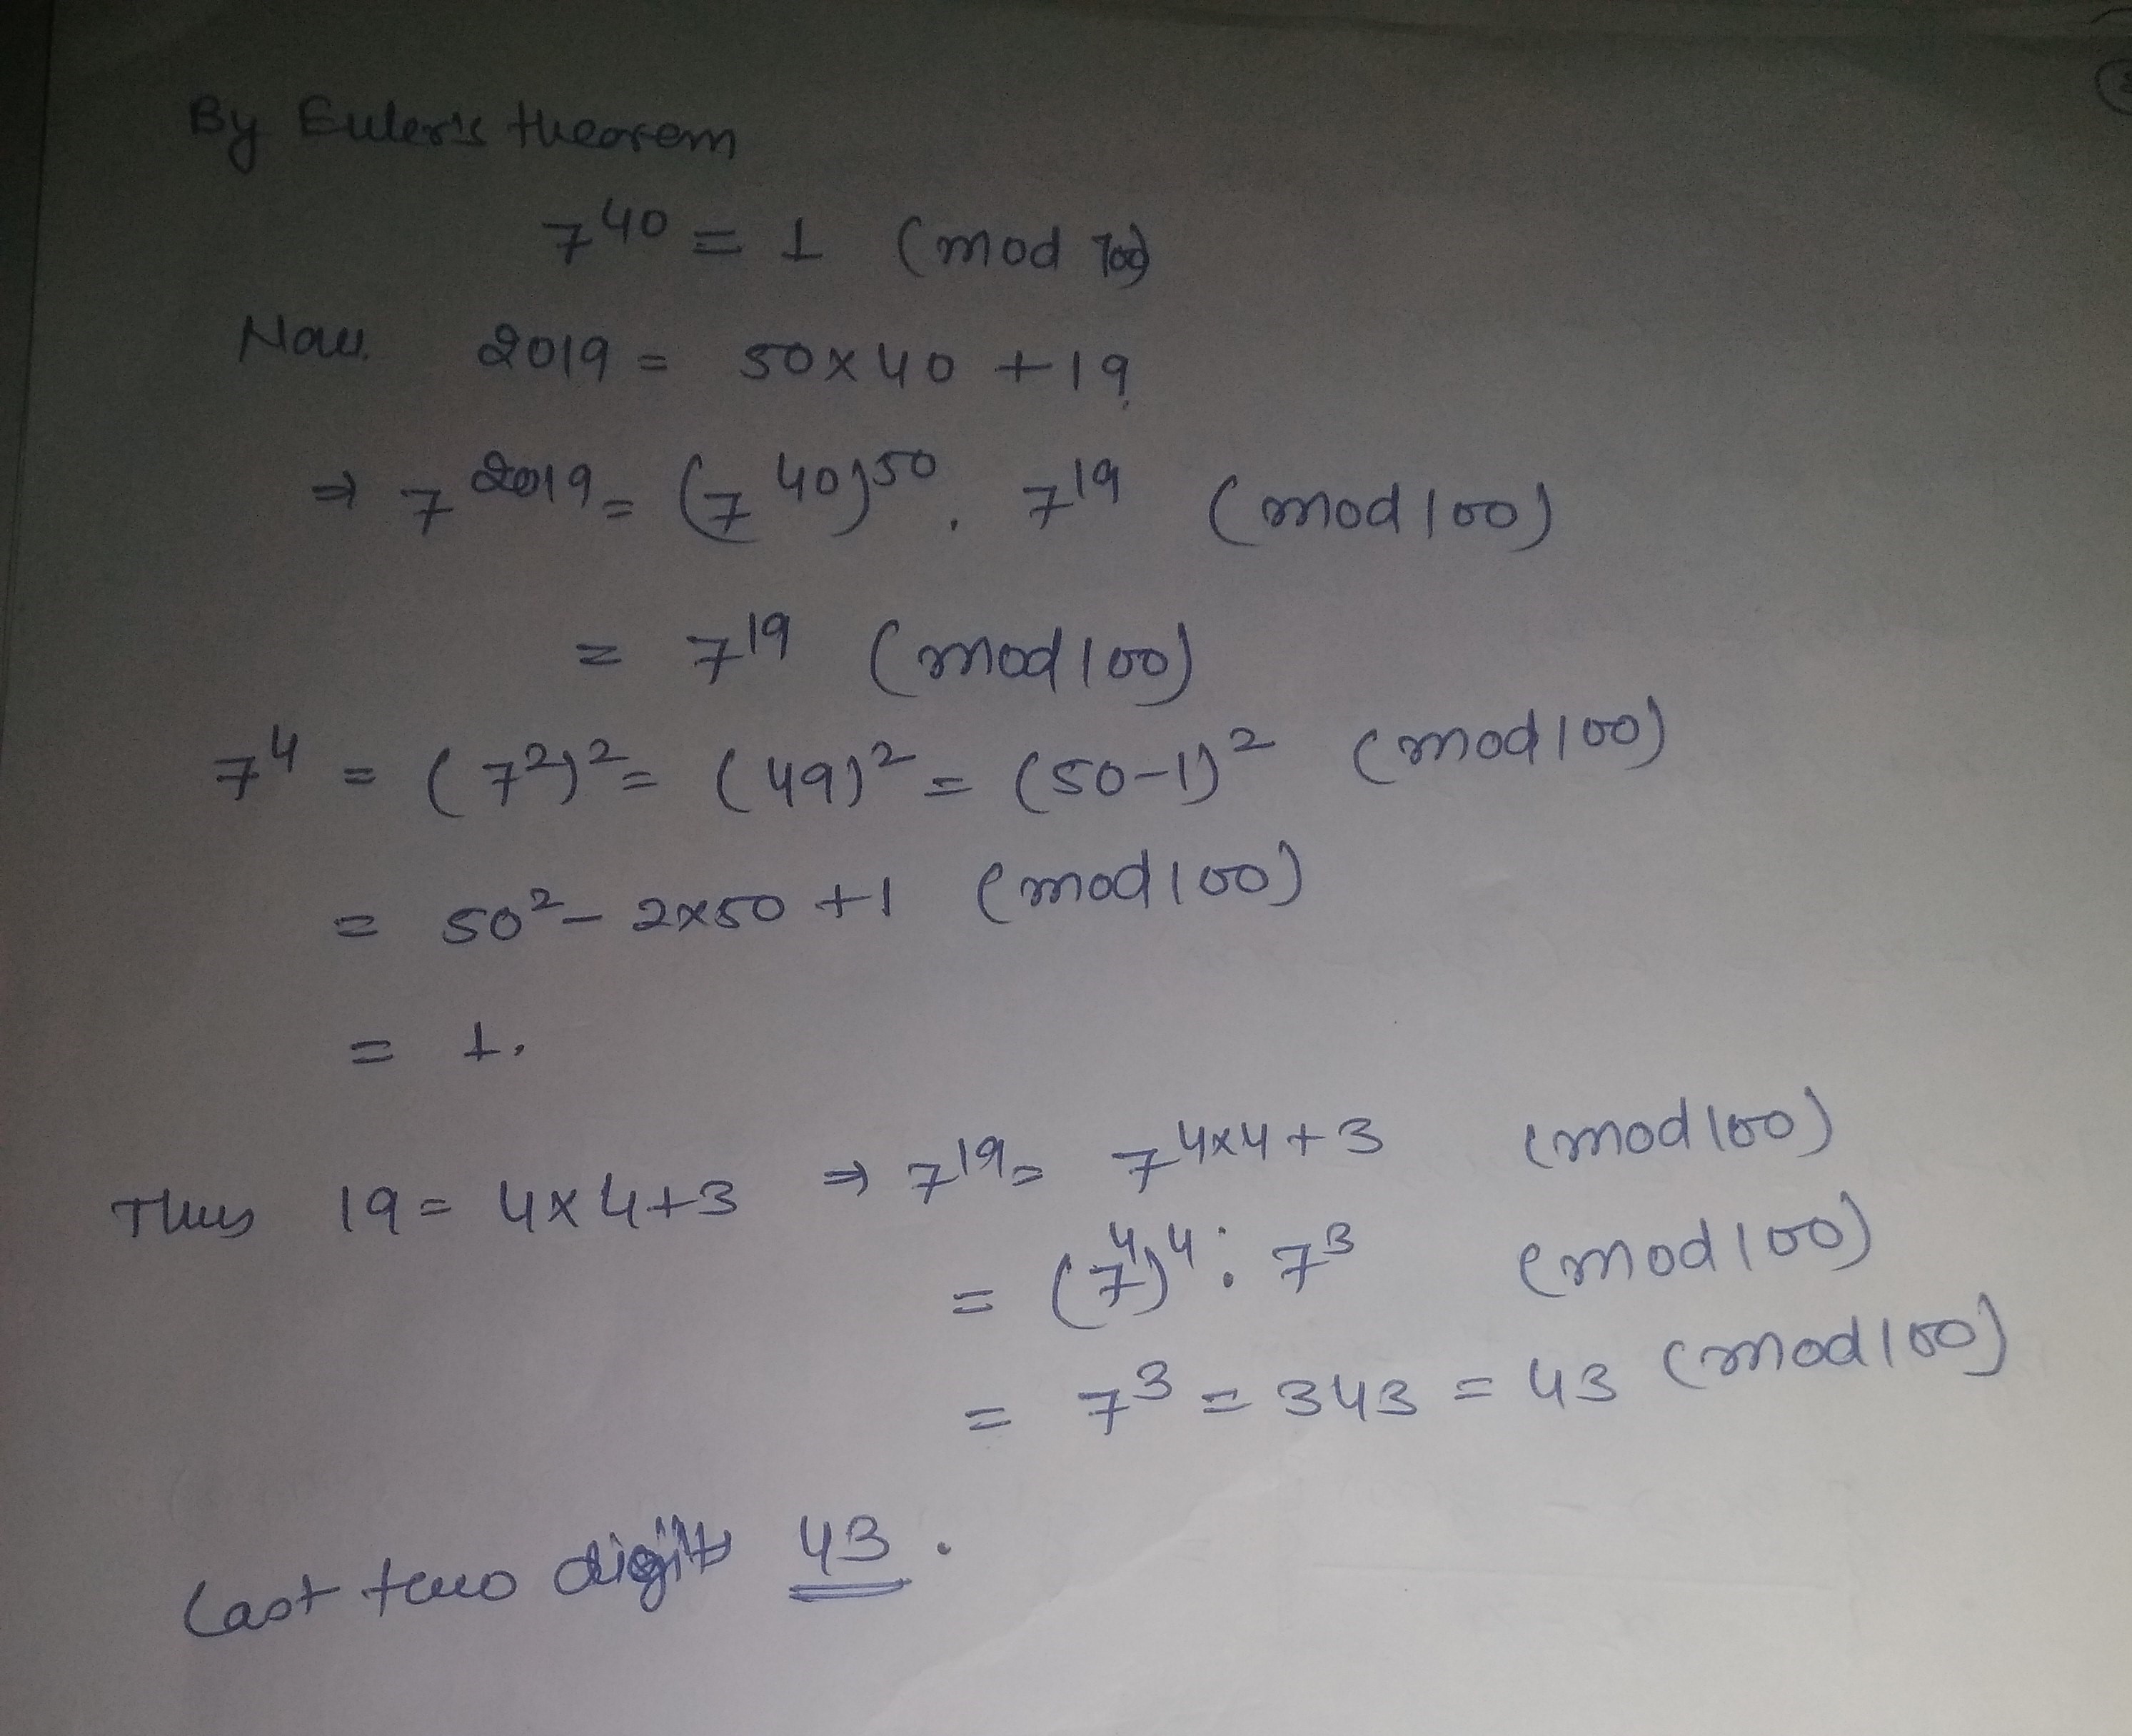 By Euler's theorem
7^40 = 1 (mod 100)
Now 2019 = 50×40 +19.
⇒ 7^2019 = (7^40)^50 . 7^19 (mod 100)
= 7^19 (mod 100)
7^4 = (7^2)^2 = (49)^2 = (50-1)^2 (mod 100)
= 50^2 - 2×50 +1 (mod 100)
= 1.
Thus 19 = 4×4+3 ⇒ 7^19 = 7^4×4+3 (mod 100)
= (7^4)^4 . 7^3 (mod 100)
= 7^3 = 343 = 43 (mod 100)
Last two digits 43 .